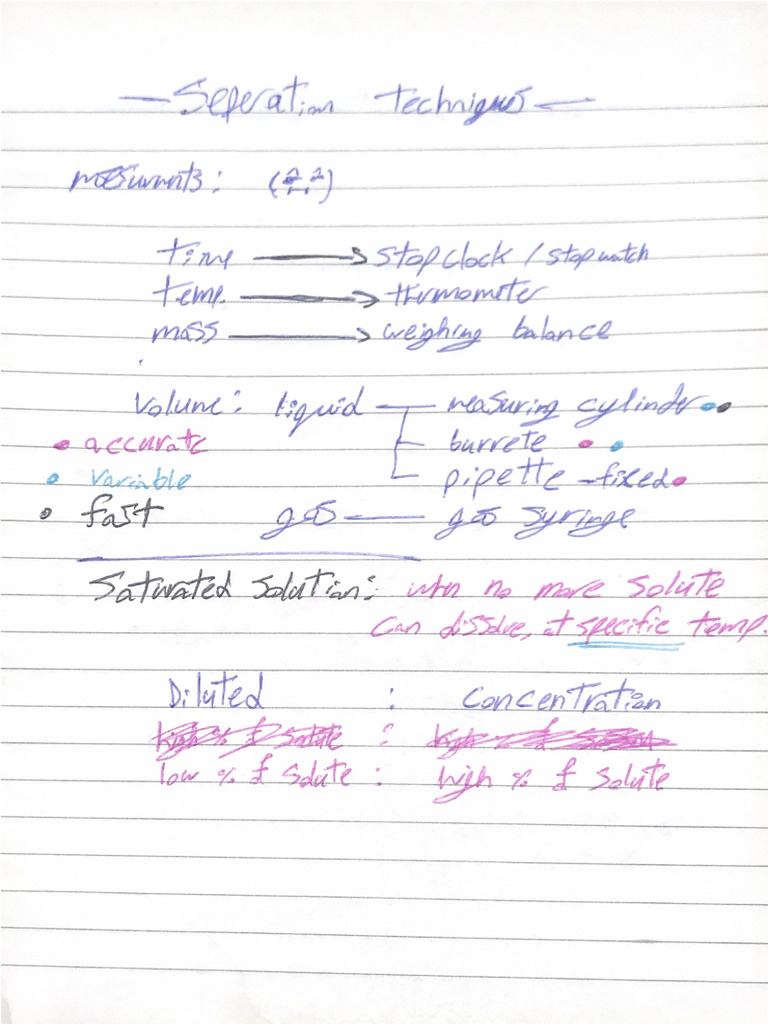 — Seperation Techniques —
measurments: (2.2)
time → stop clock / stop watch
temp. → thermometer
mass → weighing balance
Volume: liquid — measuring cylinder
• accurate burrete
• Variable pipette – fixed
• fast gas — gas syringe
Saturated Solution: when no more solute
can dissolve, at specific temp.
Diluted : Concentration
high % of solute : high % of
low % of solute : high % of solute